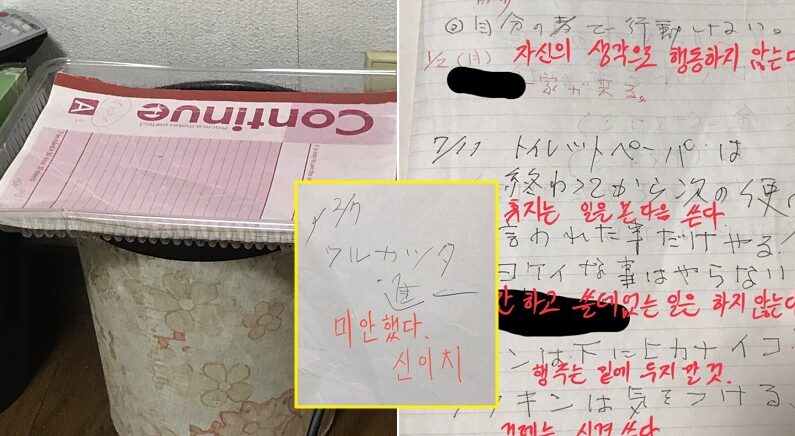 Continue
A
◎自分の考で行動しない。
1/2(月) 자신의 생각으로 행동하지 않는다
家が来る。
7/17 トイレットペーパーは
終わってから次の
휴지는 일을 본 다음 쓴다.
言われた事だけやる!
ヨケイな事はやらない
하고 쓸데없는 일은 하지 않는다
ンは下にヒカナイコ
행주는 밑에 두지 말 것.
キンは気をつける、
걸레는 신경 쓴다
ワルカッタ
進一
미안했다.
신이치